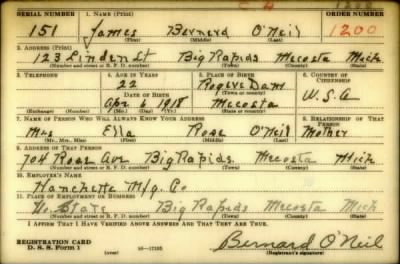 C 4 1200
SERIAL NUMBER 1. NAME (Print) ORDER NUMBER
151 James Bernerd O'Neil 1200
(First) (Middle) (Last)
2. ADDRESS (Print)
123 Linden St Big Rapids Mecosta Mich
(Number and street or R. F. D. number) (Town) (County) (State)
3. TELEPHONE 4. AGE IN YEARS 5. PLACE OF BIRTH 6. COUNTRY OF CITIZENSHIP
22 Rogers Dam
DATE OF BIRTH (Town or county)
Apr 6 1918 Mecosta U.S.A
(Exchange) (Number) (Mo.) (Day) (Yr.) (State or country)
7. NAME OF PERSON WHO WILL ALWAYS KNOW YOUR ADDRESS 8. RELATIONSHIP OF THAT PERSON
Mrs Ella Rose O'Neil Mother
(Mr., Mrs., Miss) (First) (Middle) (Last)
9. ADDRESS OF THAT PERSON
704 Rose Ave Big Rapids Mecosta Mich
(Number and street or R. F. D. number) (Town) (County) (State)
10. EMPLOYER'S NAME
Hanchette Mfg. Co
11. PLACE OF EMPLOYMENT OR BUSINESS
No. State Big Rapids Mecosta Mich
(Number and street or R. F. D. number) (Town) (County) (State)
I AFFIRM THAT I HAVE VERIFIED ABOVE ANSWERS AND THAT THEY ARE TRUE.
REGISTRATION CARD
D. S. S. Form 1 (over) 16—17105 Bernard O'Neil
(Registrant's signature)